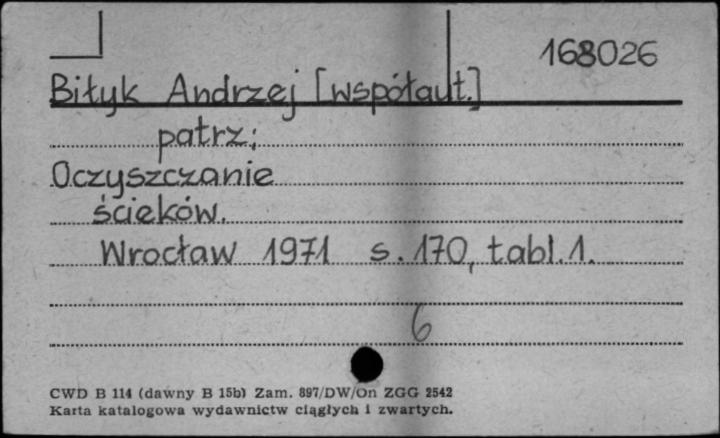 168026
Biłyk Andrzej [współaut.]
patrz:
Oczyszczanie
ścieków.
Wrocław 1971 s. 170, tabl. 1.
6
CWD B 114 (dawny B 15b) Zam. 897/DW/On ZGG 2542
Karta katalogowa wydawnictw ciągłych i zwartych.